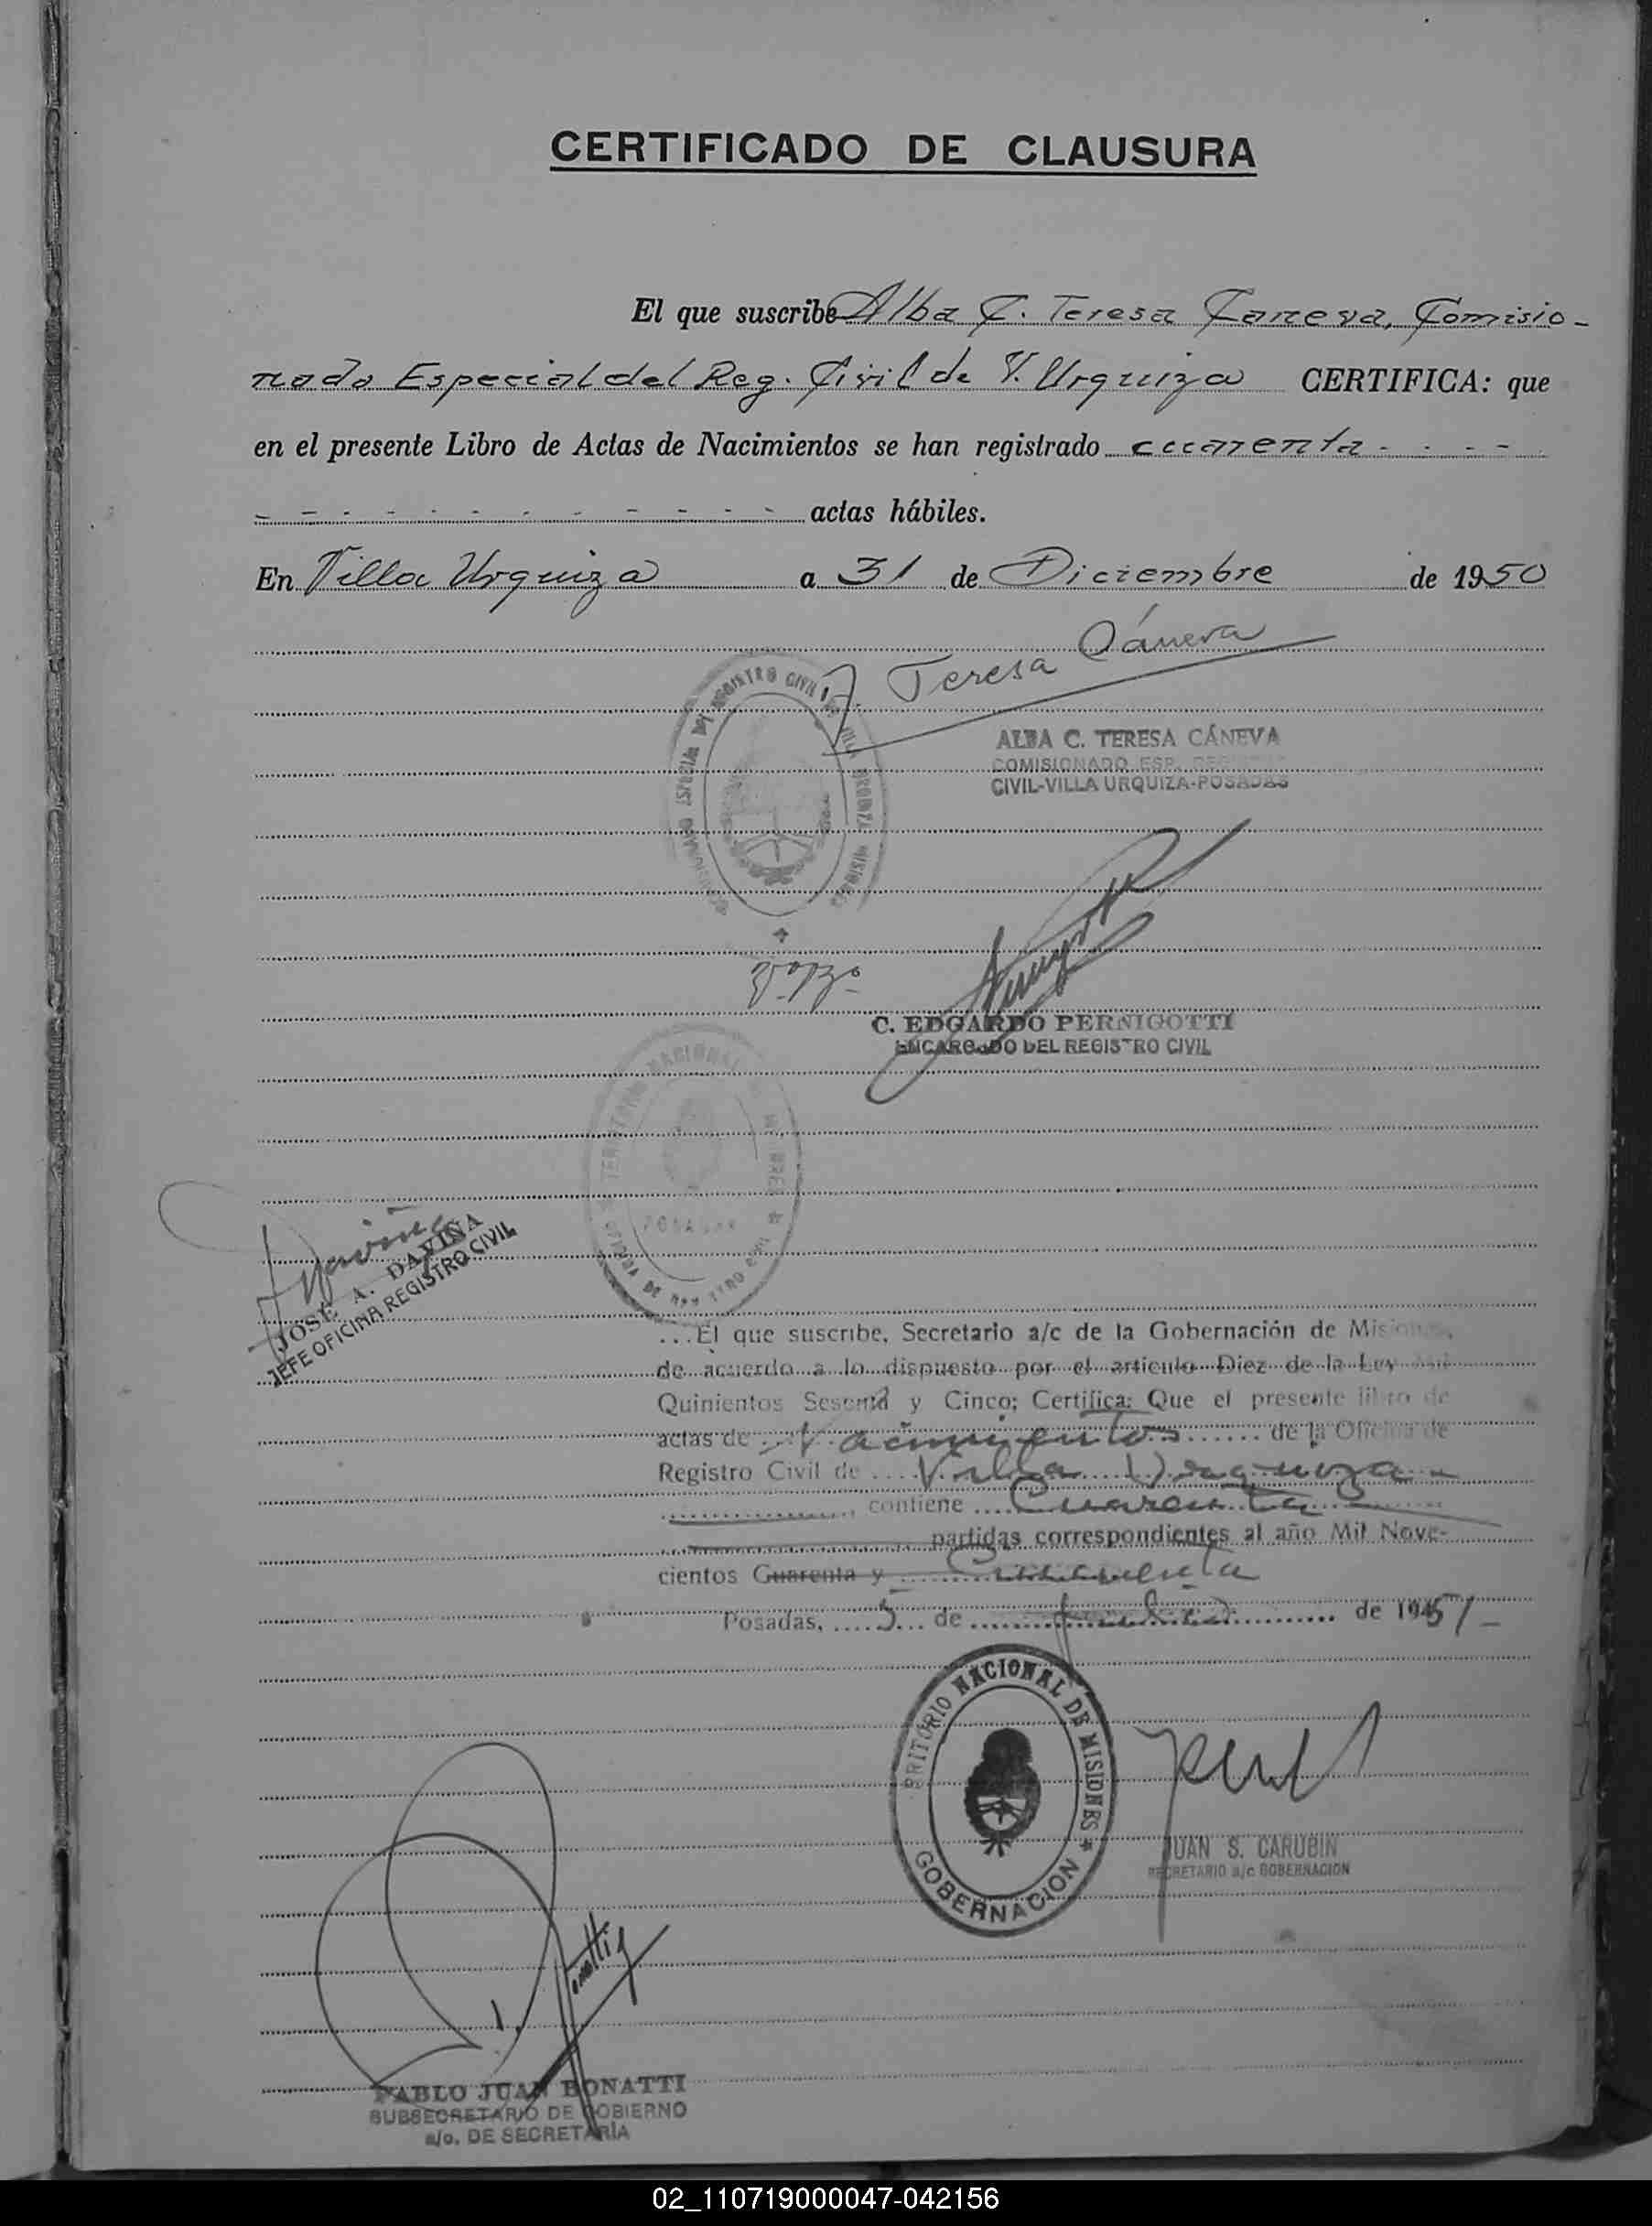 CERTIFICADO DE CLAUSURA
El que suscribe Alba C. Teresa Caneva, Comisio-
nado Especial del Reg. Civil de V. Urquiza CERTIFICA: que
en el presente Libro de Actas de Nacimientos se han registrado cuarenta - - - -
- - - - - - - - - - - actas hábiles.
En Villa Urquiza a 31 de Diciembre de 1950
Teresa Cáneva
ALBA C. TERESA CÁNEVA
COMISIONADO ESP.
CIVIL-VILLA URQUIZA-POSADAS
C. EDGARDO PERNIGOTTI
ENCARGADO DEL REGISTRO CIVIL
JOSE A. DAVIÑA
JEFE OFICINA REGISTRO CIVIL
...El que suscribe, Secretario a/c de la Gobernación de Misiones,
de acuerdo a lo dispuesto por el artículo Diez de la Ley Mil
Quinientos Sesenta y Cinco; Certifica: Que el presente libro de
actas de Nacimientos de la Oficina de
Registro Civil de Villa Urquiza -
, contiene Cuarenta
partidas correspondientes al año Mil Nove-
cientos Cuarenta y Cincuenta
Posadas, 5 de de 1951 -
TERRITORIO NACIONAL DE MISIONES
GOBERNACION
JUAN S. CARUBIN
SECRETARIO a/c GOBERNACION
PABLO JUAN BONATTI
SUBSECRETARIO DE GOBIERNO
a/c. DE SECRETARÍA
02_110719000047-042156